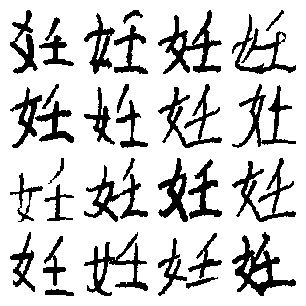 妊妊妊妊
妊妊妊妊
妊妊妊妊
妊妊妊妊